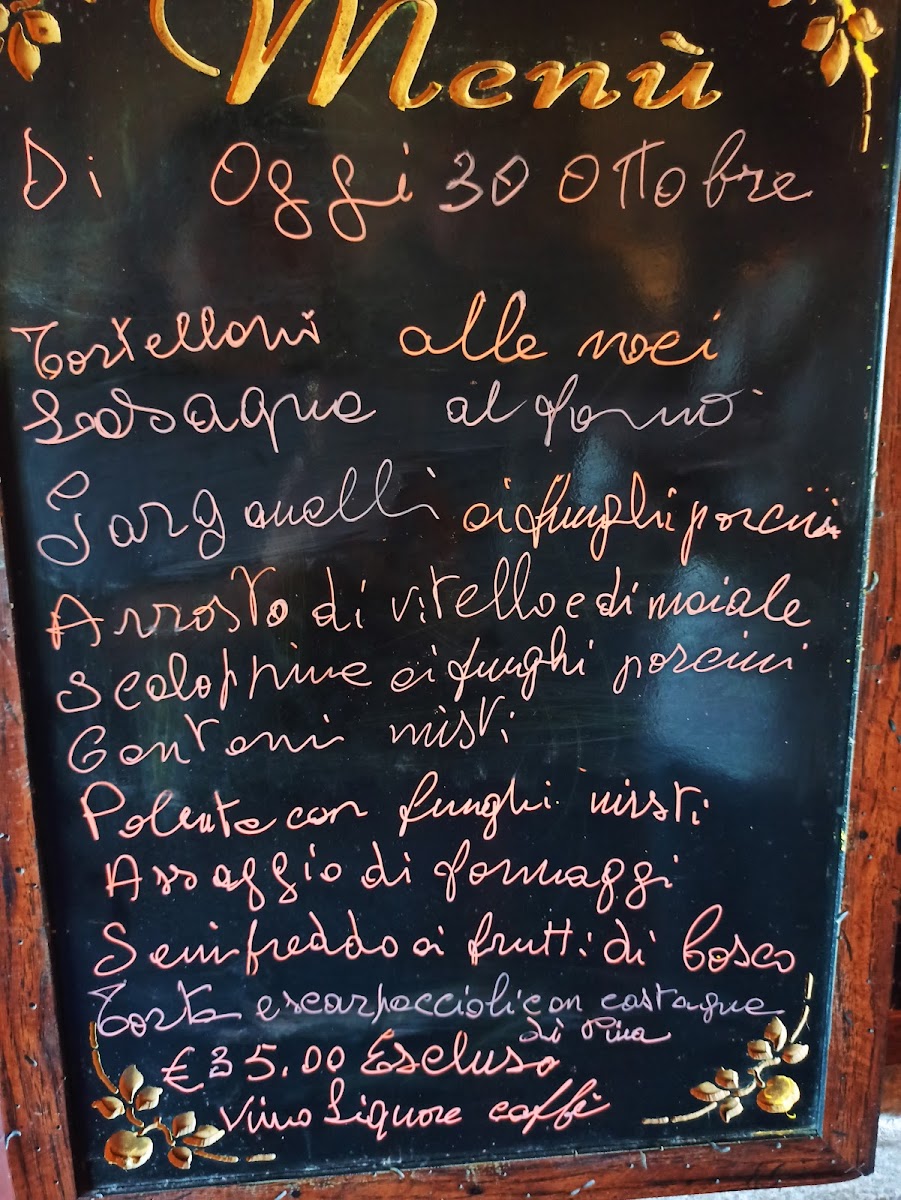 Menù
Di Oggi 30 Ottobre
Tortelloni alle noci
Lasagne al forno
Garganelli ai funghi porcini
Arrosto di vitello e di maiale
Scaloppine ai funghi porcini
Contorni misti
Polenta con funghi misti
Assaggio di formaggi
Semifreddo ai frutti di bosco
Torta e scarpaccioli con castagne
di Pina
€ 35.00 Escluso
Vino Liquore caffè